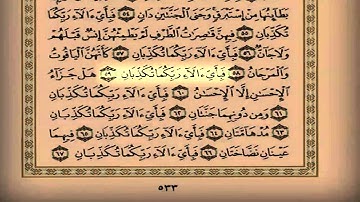 بَطَآئِنُهَا مِنْ إِسْتَبْرَقٍ وَجَنَى ٱلْجَنَّتَيْنِ دَانٍ ٥٤ فَبِأَيِّ ءَالَآءِ رَبِّكُمَا
تُكَذِّبَانِ ٥٥ فِيهِنَّ قَٰصِرَٰتُ ٱلطَّرْفِ لَمْ يَطْمِثْهُنَّ إِنسٌ قَبْلَهُمْ
وَلَا جَآنٌّ ٥٦ فَبِأَيِّ ءَالَآءِ رَبِّكُمَا تُكَذِّبَانِ ٥٧ كَأَنَّهُنَّ ٱلْيَاقُوتُ
وَٱلْمَرْجَانُ ٥٨ فَبِأَيِّ ءَالَآءِ رَبِّكُمَا تُكَذِّبَانِ ٥٩ هَلْ جَزَآءُ
ٱلْإِحْسَٰنِ إِلَّا ٱلْإِحْسَٰنُ ٦٠ فَبِأَيِّ ءَالَآءِ رَبِّكُمَا تُكَذِّبَانِ
٦١ وَمِن دُونِهِمَا جَنَّتَانِ ٦٢ فَبِأَيِّ ءَالَآءِ رَبِّكُمَا تُكَذِّبَانِ
٦٣ مُدْهَآمَّتَانِ ٦٤ فَبِأَيِّ ءَالَآءِ رَبِّكُمَا تُكَذِّبَانِ ٦٥ فِيهِمَا
عَيْنَانِ نَضَّاخَتَانِ ٦٦ فَبِأَيِّ ءَالَآءِ رَبِّكُمَا تُكَذِّبَانِ ٦٧
٥٣٣